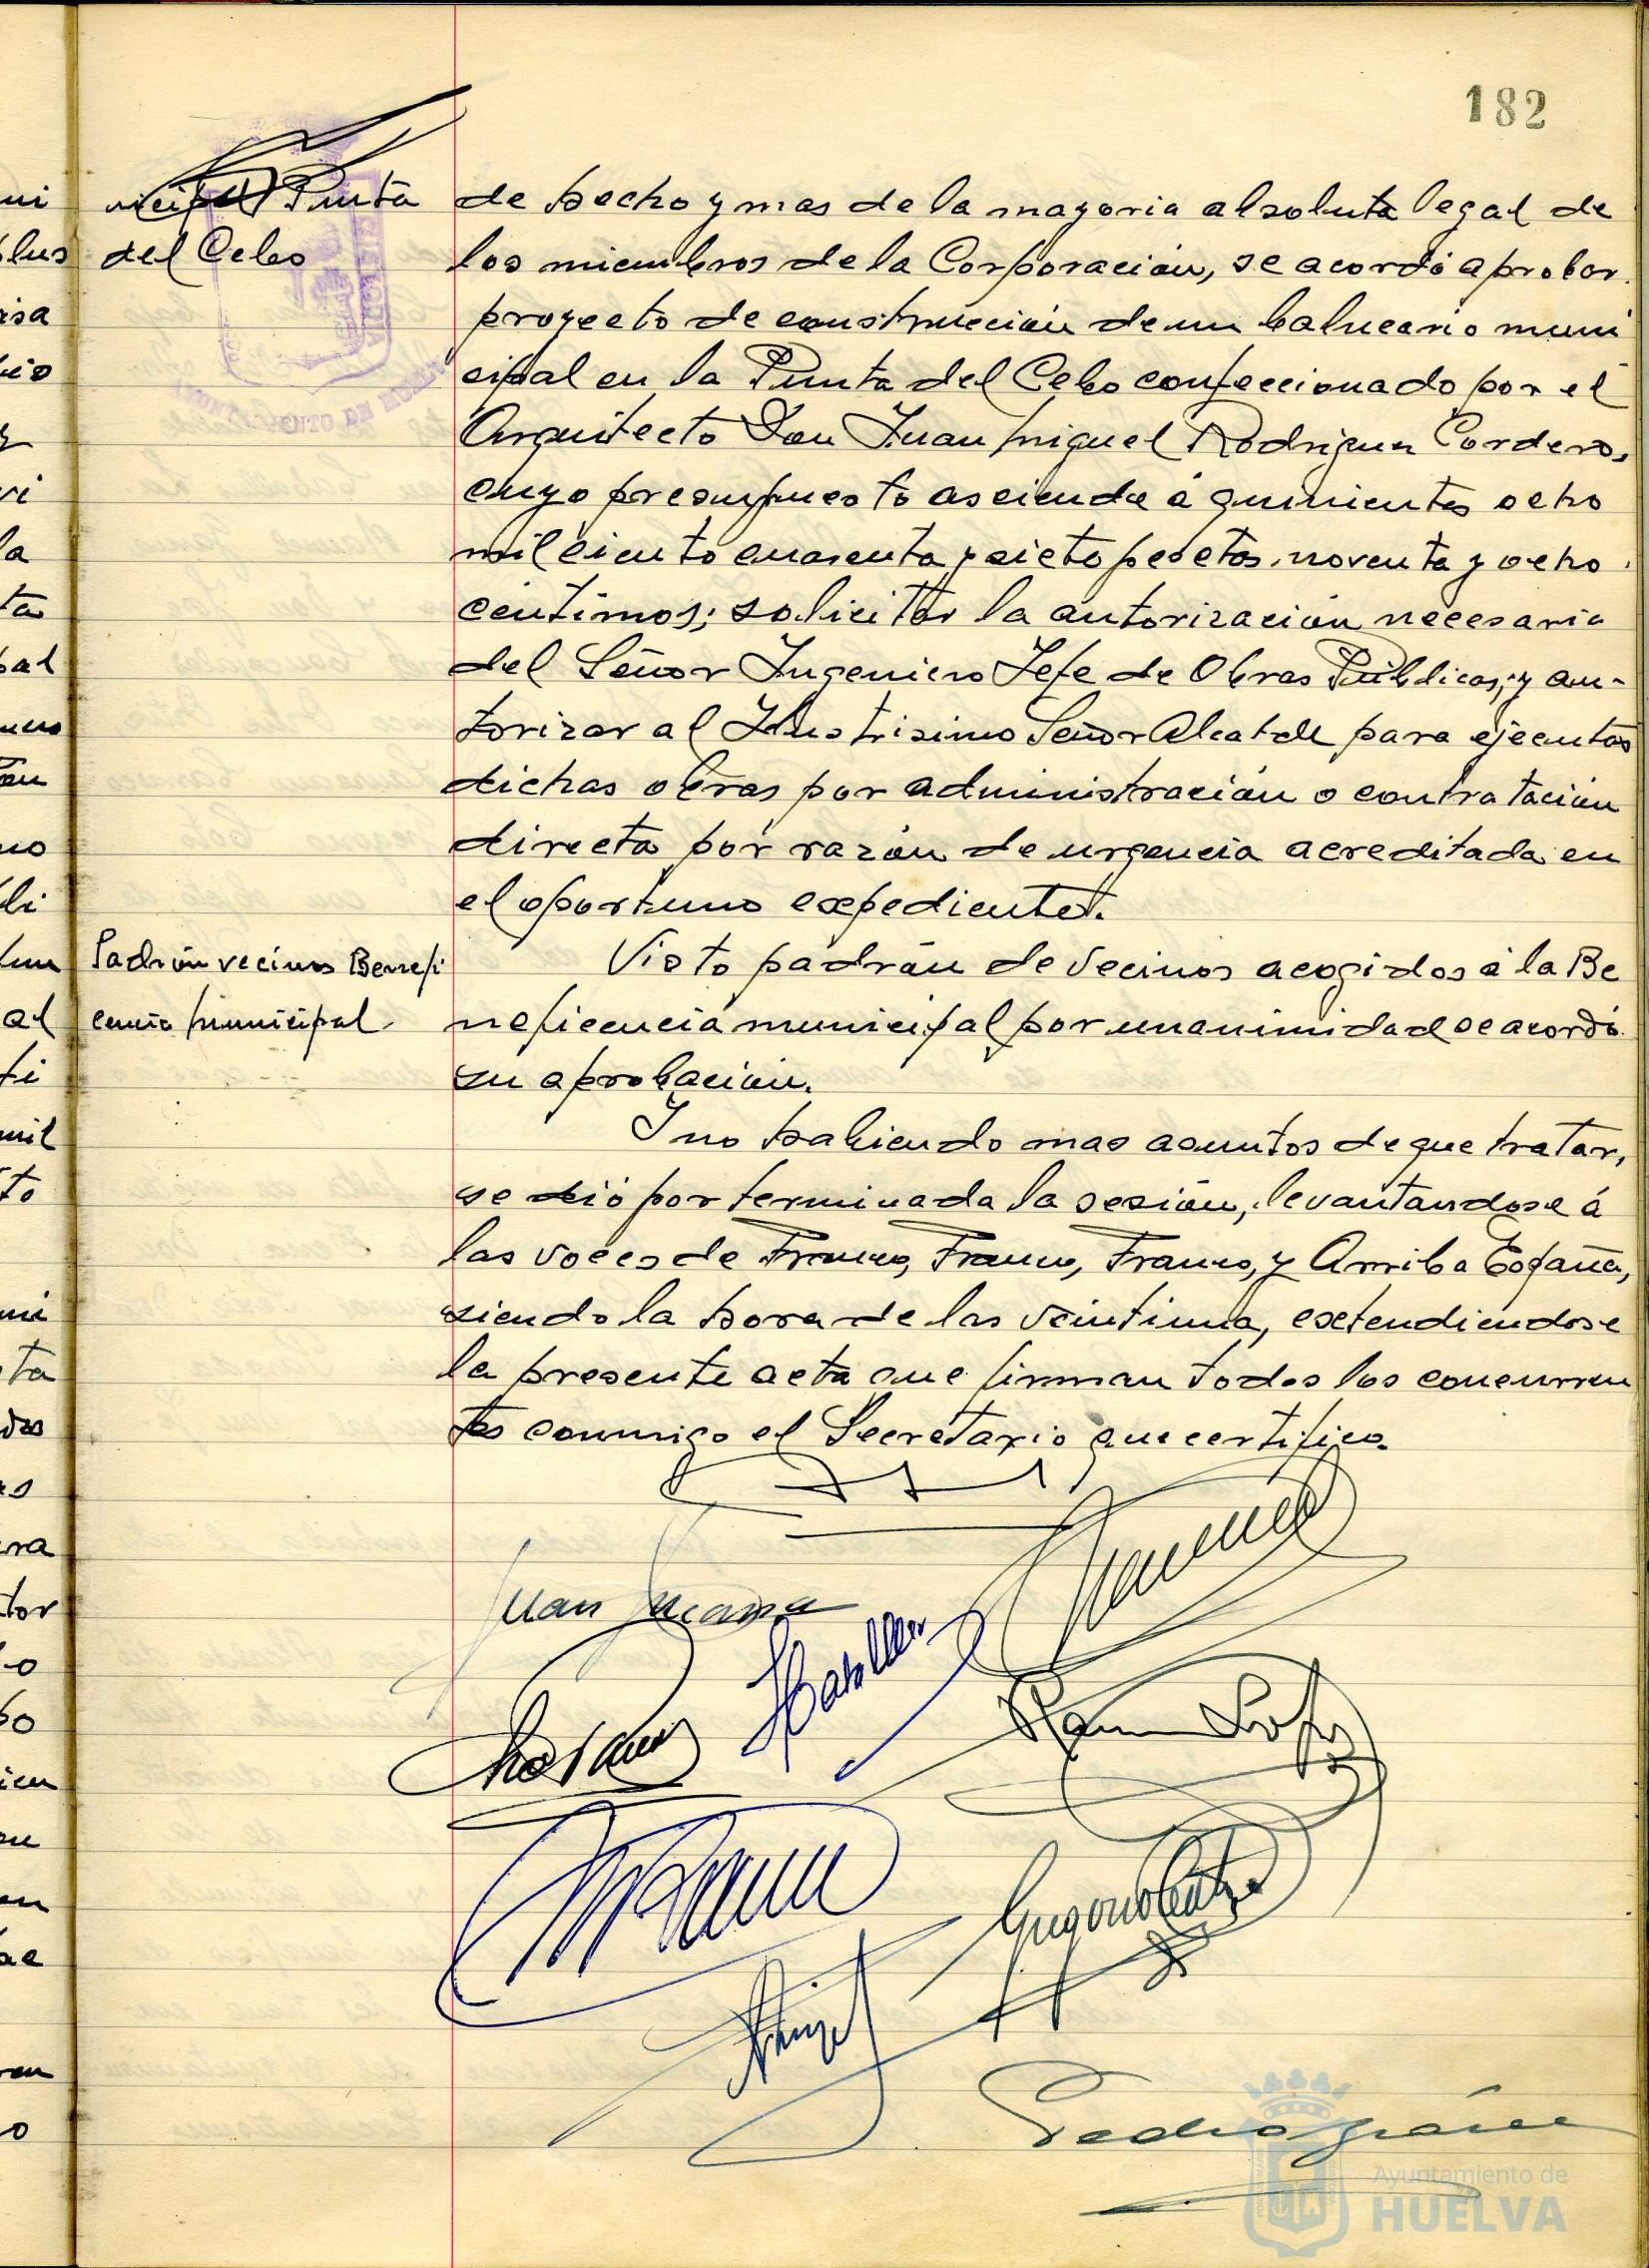 182
nicipal Punta
del Cebo
de hecho y mas de la mayoria absoluta legal de
los miembros de la Corporación, se acordó aprobar
proyecto de construcción de un balneario muni
cipal en la Punta del Cebo confeccionado por el
Arquitecto Don Juan Miguel Rodriguez Cordero,
cuyo presupuesto asciende á quinientas ocho
mil ciento cuarenta y siete pesetas noventa y ocho
centimos; solicitar la autorización necesaria
del Señor Ingeniero Jefe de Obras Públicas; y au-
torizar al Ilustrisimo Señor Alcalde para ejecutar
dichas obras por administración o contratación
directa por razón de urgencia acreditada en
el oportuno expediente.
Padrón vecinos Benefi
cencia municipal.
Visto padrón de vecinos acogidos á la Be
neficencia municipal por unanimidad se acordó
su aprobación.
Y no habiendo mas asuntos de que tratar,
se dió por terminada la sesión, levantandose á
las voces de Franco, Franco, Franco, y Arriba España,
siendo la hora de las veintiuna, extendiendose
la presente acta que firman todos los concurren
tes conmigo el Secretario que certifico.
Juan
Pedro
AYUNTAMIENTO DE HUELVA
Ayuntamiento de
HUELVA